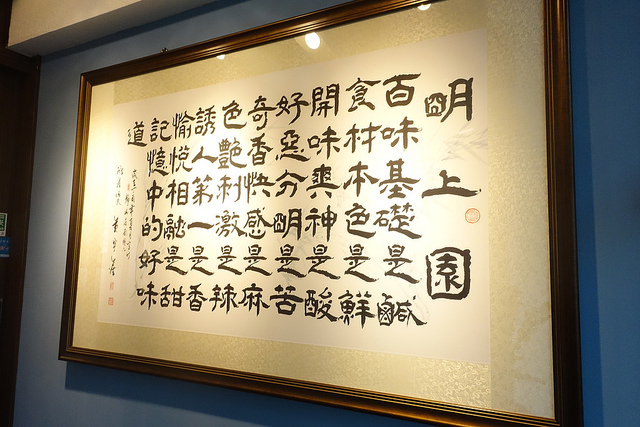 朙上園
百味基礎是鹹
食材本色是鮮
開味爽神是酸
好惡分朙是苦
奇香快感是麻
色艷刺激是辣
誘人第一是香
愉悅相融是甜
記憶中的好味
道